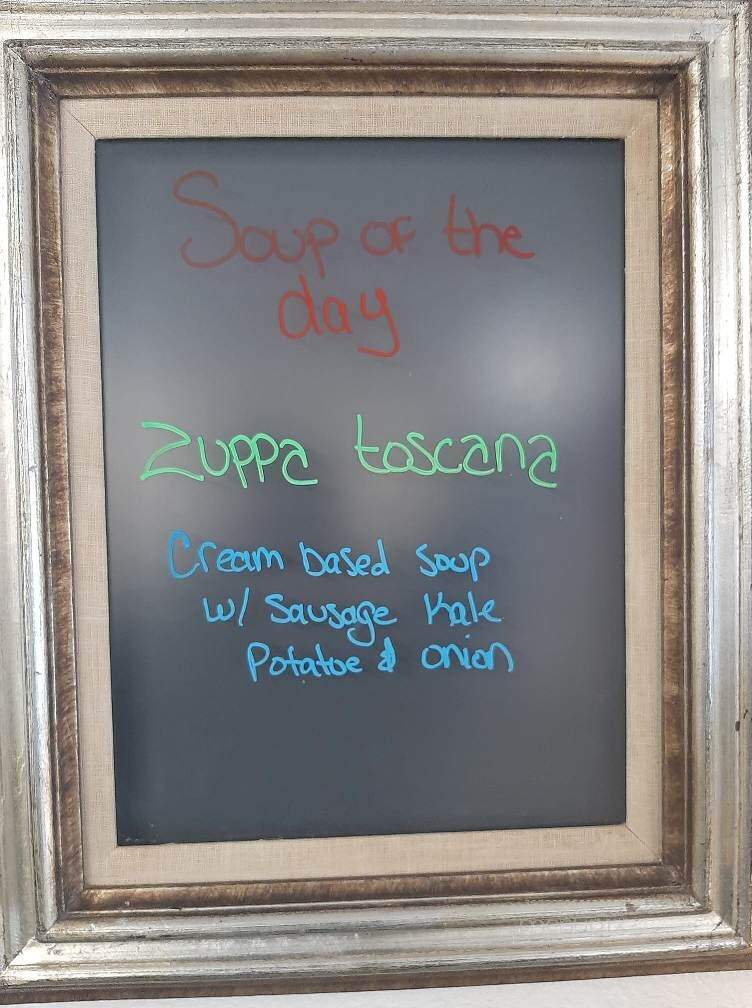 Soup of the
day
Zuppa toscana
Cream based soup
w/ Sausage Kale
Potatoe & onion